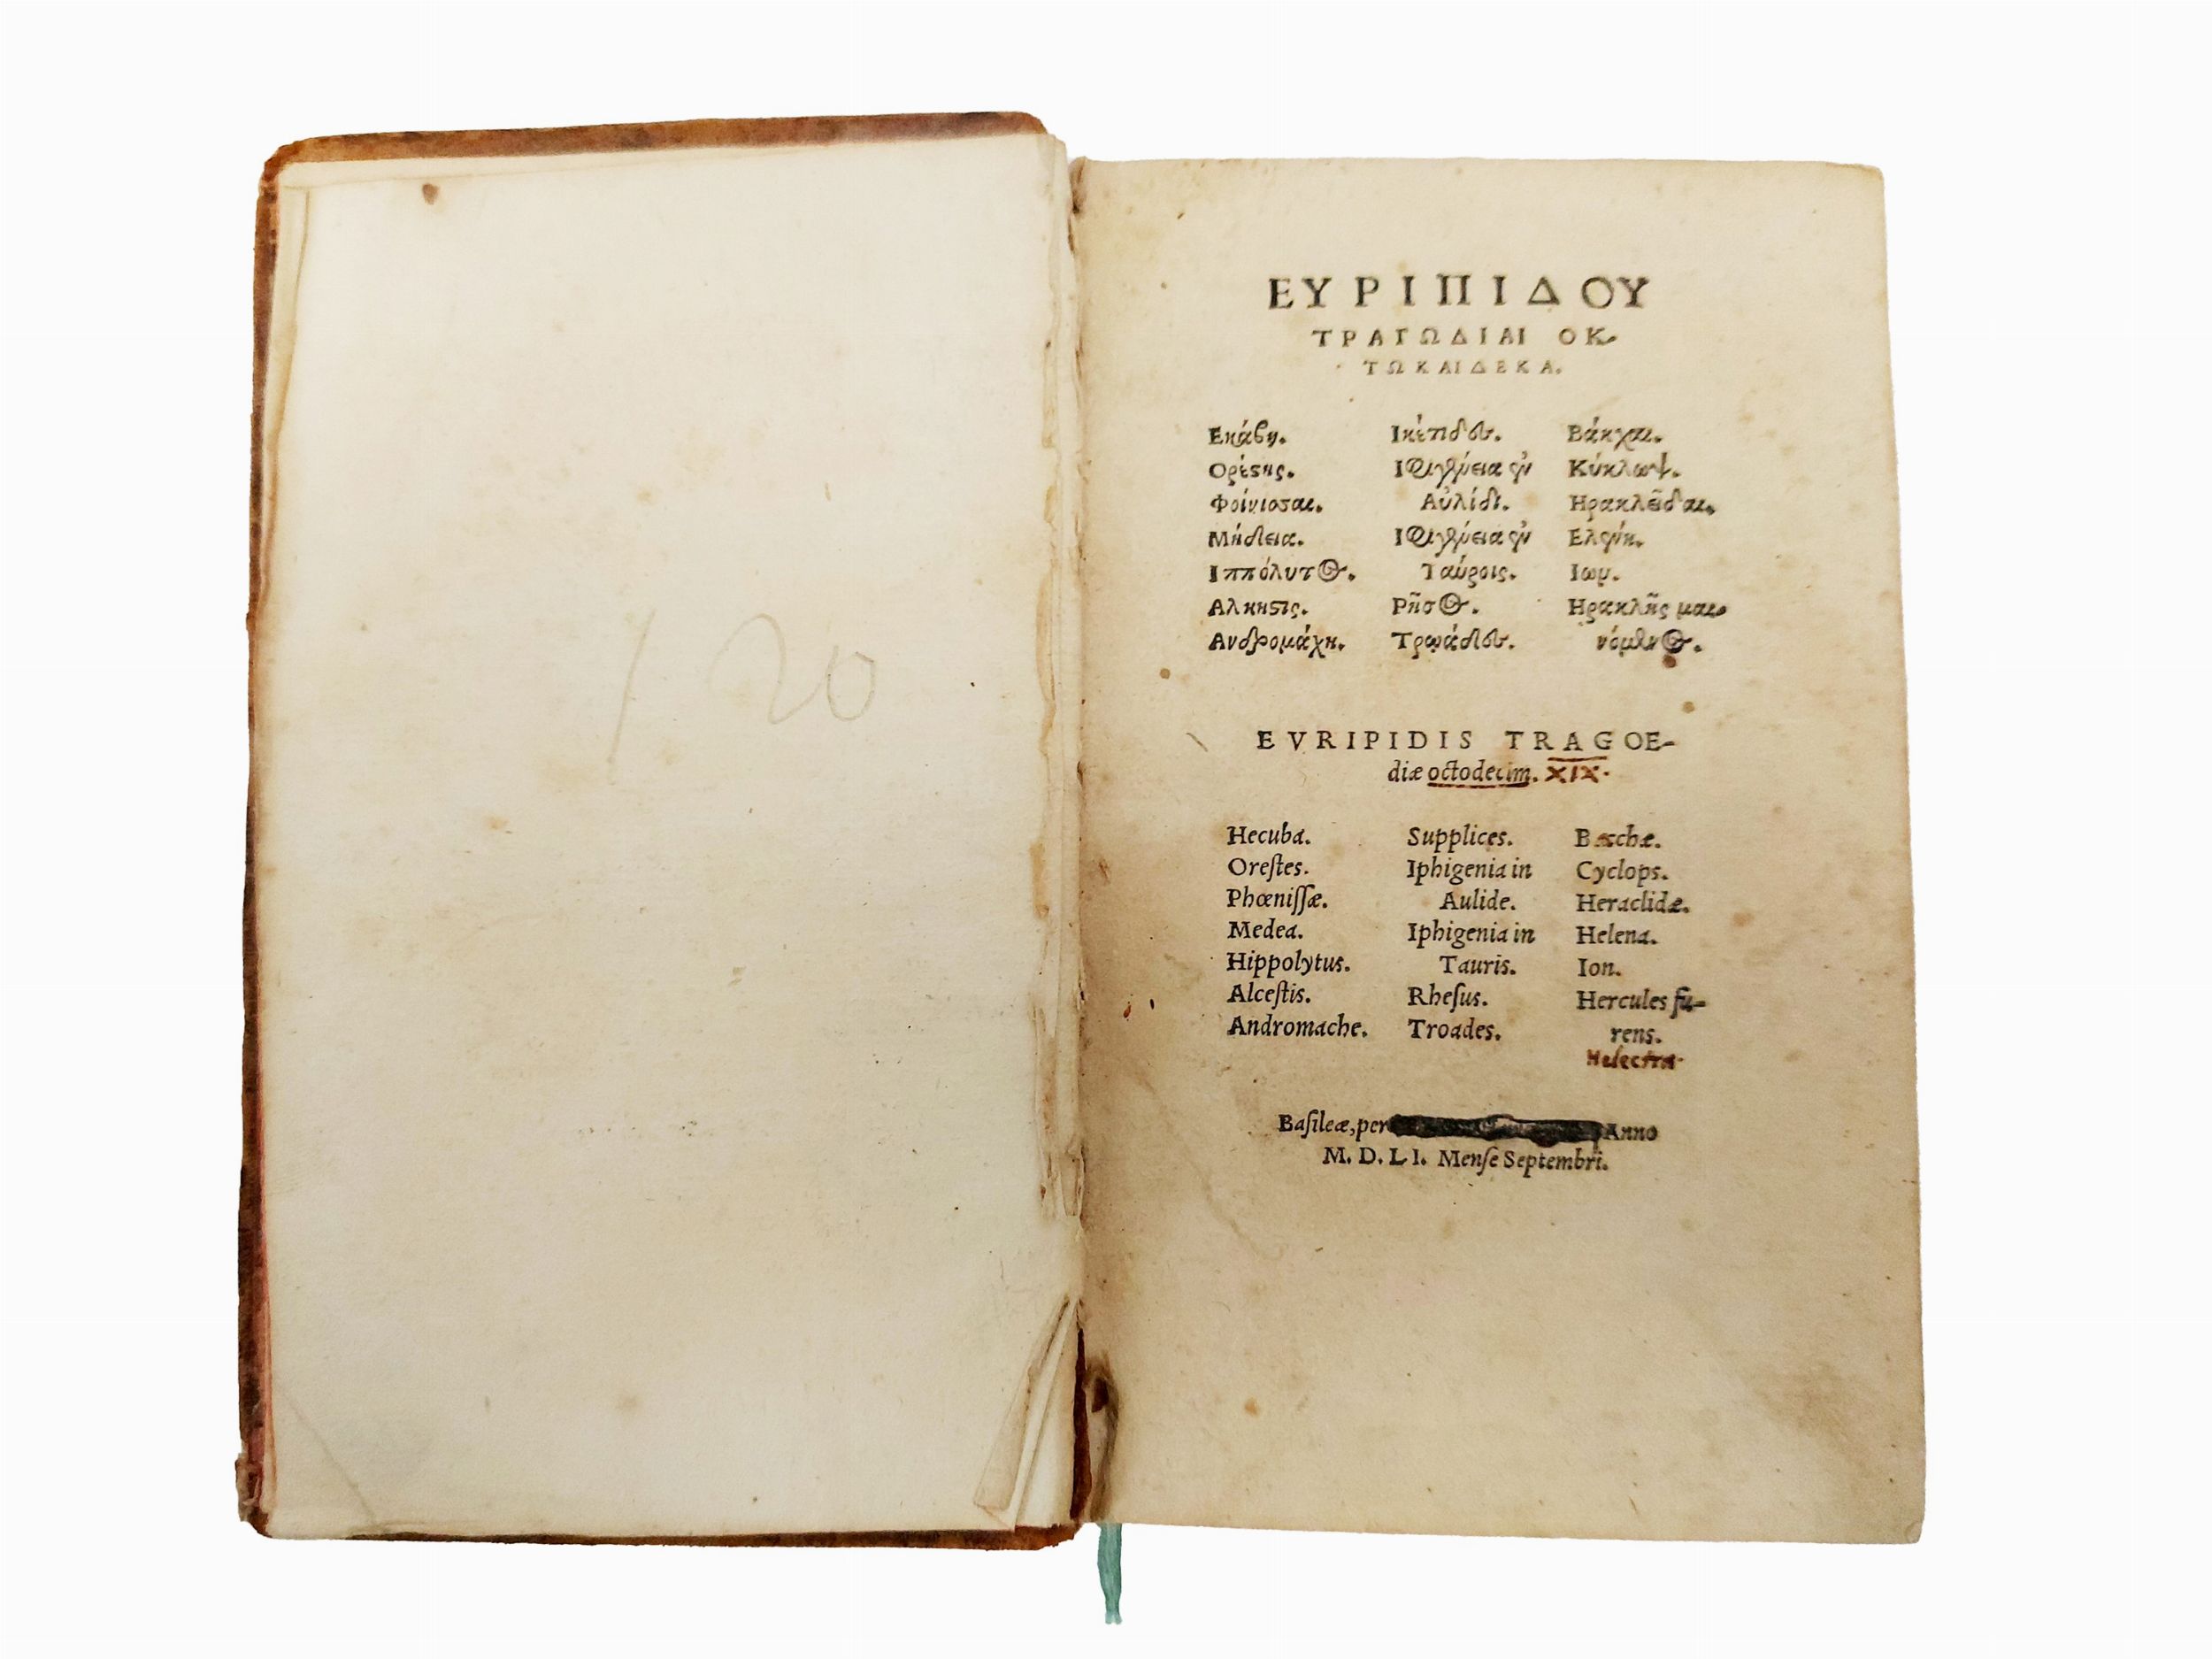 120
ΕΥΡΙΠΙΔΟΥ
ΤΡΑΓΩΔΙΑΙ ΟΚ-
ΤΩΚΑΙΔΕΚΑ.
Εκάβη. Ικέτιδες. Βάκχαι.
Ορέστης. Ιφιγένεια ἐν Κύκλωψ.
Φοίνισσαι. Αὐλίδι. Ηρακλεῖδαι.
Μήδεια. Ιφιγένεια ἐν Ελένη.
Ιππόλυτος. Ταύροις. Ιων.
Αλκηστις. Ρῆσος. Ηρακλῆς μαι-
Ανδρομάχη. Τρωάδες. νόμενος.
EVRIPIDIS TRAGOE-
diæ octodecim. XIX.
Hecuba. Supplices. Bacchæ.
Oreſtes. Iphigenia in Cyclops.
Phœniſſæ. Aulide. Heraclidæ.
Medea. Iphigenia in Helena.
Hippolytus. Tauris. Ion.
Alceſtis. Rheſus. Hercules fu-
Andromache. Troades. rens.
Helectra.
Baſileæ, per Anno
M. D. L I. Menſe Septembri.